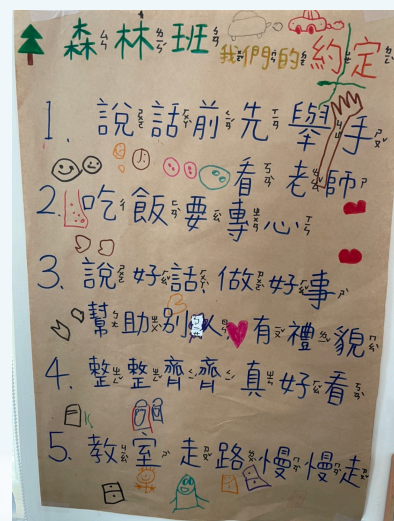 森林班 我們的約定
1. 說話前先舉手
看老師
2. 吃飯要專心
3. 說好話做好事
幫助別人有禮貌
4. 整整齊齊真好看
5. 教室走路慢慢走